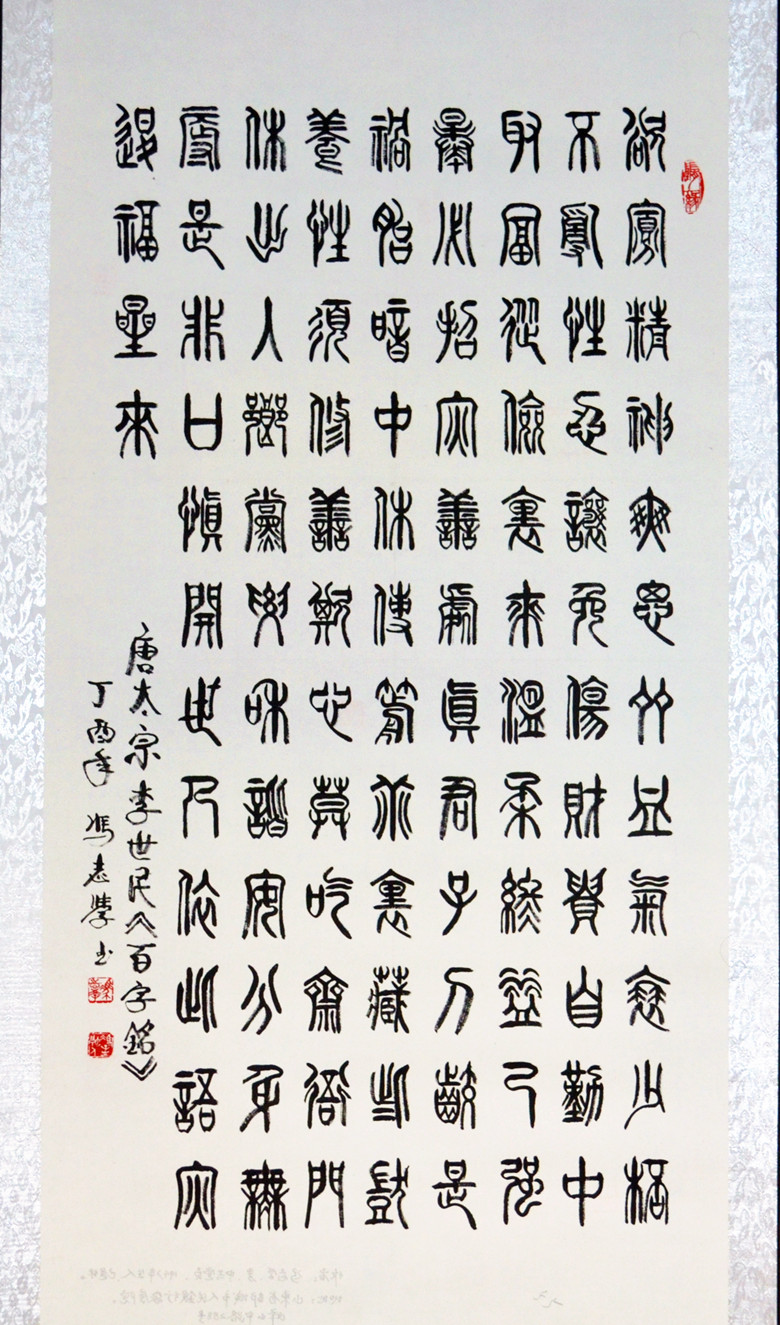 欲寡精神爽思多血氣衰少桮
不亂性忍讓免傷財貴自勤中
取富從儉裏來溫柔終益己強
暴必招災善處真君子刁是
禍胎暗中休使箭乖裏藏些獃
養性須修善欺心莫吃齋衙門
休出入鄉黨要和諧安分身無
辱是非口慎開世乃依此語災
退福星來
唐太宗李世民《百字銘》
丁酉年 馮志學書